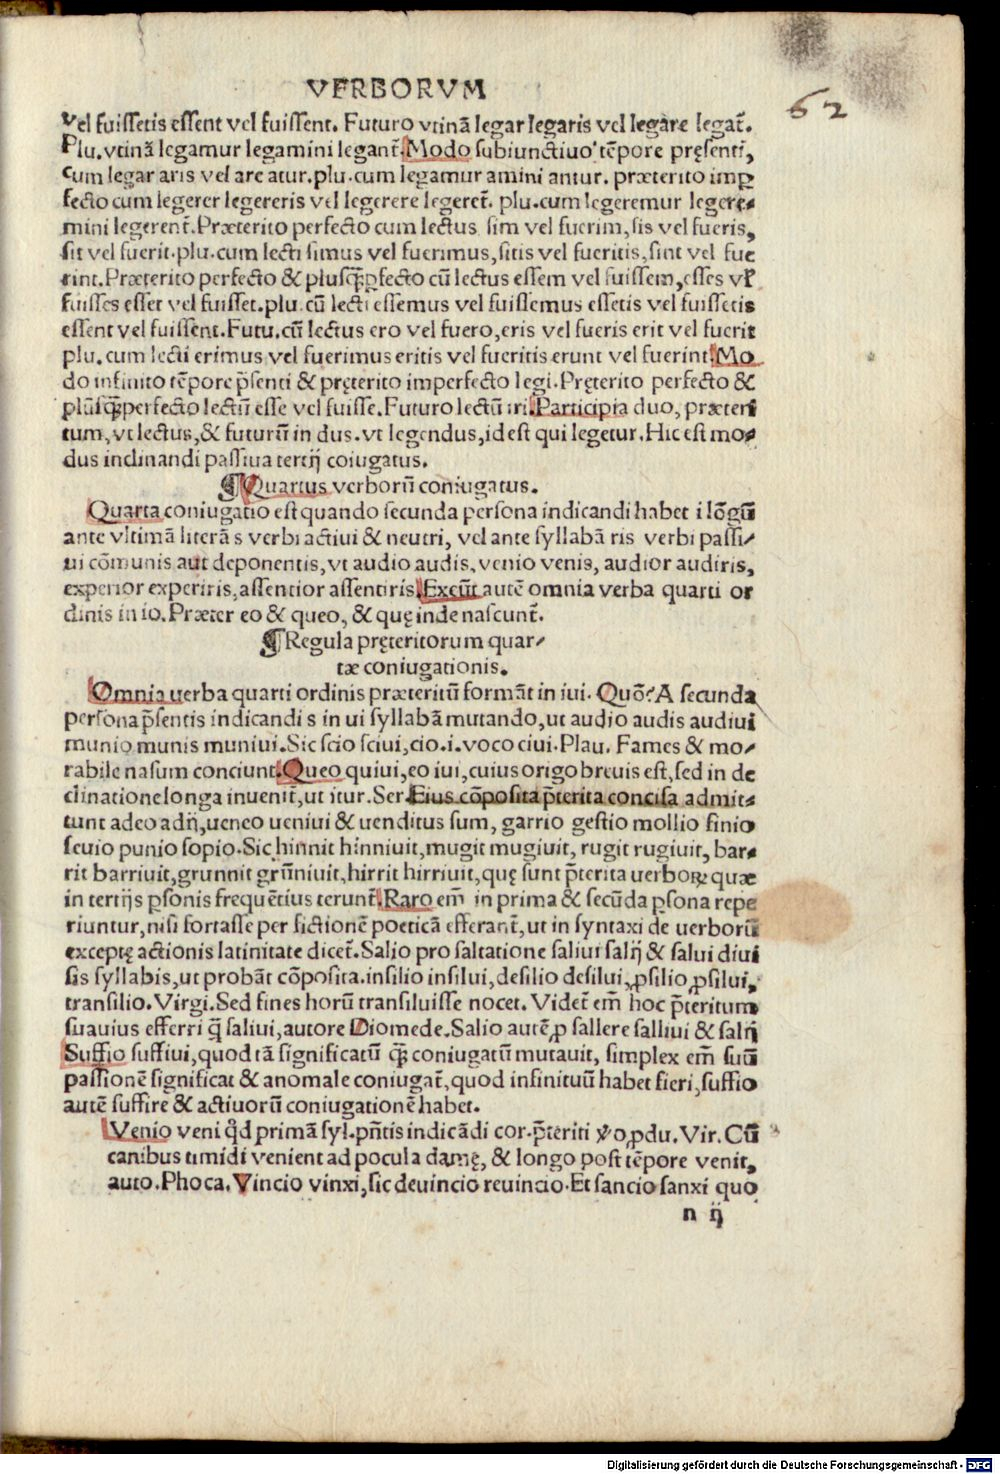 VERBORVM
62
vel fuissetis essent vel fuissent. Futuro vtinā legar legaris vel legare legat̄.
Plu. vtinā legamur legamini legant̄. Modo subiunctiuo tēpore pręsenti,
cum legar aris vel are atur. plu. cum legamur amini antur. præterito imꝑ
fecto cum legerer legereris vel legerere legeret̄. plu. cum legeremur legere-
mini legerent̄. Præterito perfecto cum lectus sim vel fuerim, sis vel fueris,
sit vel fuerit. plu. cum lecti simus vel fuerimus, sitis vel fueritis, sint vel fue
rint. Præterito perfecto & plusq̄ꝑfecto cū lectus essem vel fuissem, esses vł
fuisses esset vel fuisset. plu. cū lecti essemus vel fuissemus essetis vel fuissetis
essent vel fuissent. Futu. cū lectus ero vel fuero, eris vel fueris erit vel fuerit
plu. cum lecti erimus vel fuerimus eritis vel fueritis erunt vel fuerint. Mo
do infinito tēpore p̄senti & pręterito imperfecto legi. Pręterito perfecto &
plūsq̄perfecto lectū esse vel fuisse. Futuro lectū iri. Participia duo, præteri
tum, vt lectus, & futurū in dus. vt legendus, id est qui legetur. Hic est mo-
dus inclinandi passiua tertij coiugatus.
¶ Quartus verborū coniugatus.
Quarta coniugatio est quando secunda persona indicandi habet i lōgū
ante vltimā literā s verbi actiui & neutri, vel ante syllabā ris verbi passi-
ui cōmunis aut deponentis, vt audio audis, venio venis, audior audiris,
experior experiris, assentior assentiris. Exeūt autē omnia verba quarti or
dinis in io. Præter eo & queo, & quę inde nascunt̄.
¶ Regula pręteritorum quar-
tæ coniugationis.
Omnia uerba quarti ordinis præteritū formāt in iui. Quō? A secunda
persona p̄sentis indicandi s in ui syllabā mutando, ut audio audis audiui
munio munis muniui. Sic scio sciui, cio. i. voco ciui. Plau. Fames & mo-
rabile nasum conciunt. Queo quiui, eo iui, cuius origo breuis est, sed in de
clinatione longa inuenit̄, ut itur. Ser. Eius cōposita p̄terita concisa admit-
tunt adeo adij, ueneo ueniui & uenditus sum, garrio gestio mollio finio
seuio punio sopio. Sic hinnit hinniuit, mugit mugiuit, rugit rugiuit, bar-
rit barriuit, grunnit grūniuit, hirrit hirriuit, quę sunt p̄terita uerboꝝ quæ
in tertijs ꝑsonis frequētius terunt̄. Raro em̄ in prima & secūda ꝑsona repe
riuntur, nisi fortasse per fictionē poeticā efferant̄, ut in syntaxi de uerborū
exceptę actionis latinitate dicet̄. Salio pro saltatione saliui salij & salui diui
sis syllabis, ut probāt cōposita. insilio insilui, desilio desilui, ꝓsilio ꝓsilui,
transilio. Virgi. Sed fines horū transiluisse nocet. Videt̄ em̄ hoc p̄teritum
suauius efferri q̄ saliui, autore Diomede. Salio autē ꝓ sallere salliui & salij
Suffio suffiui, quod tā significatū q̄ coniugatū mutauit, simplex em̄ suū
passionē significat & anomale coniugat̄, quod infinituū habet fieri, suffio
autē suffire & actiuorū coniugationē habet.
Venio veni qđ primā syl. p̄ntis indicādi cor. p̄teriti v̓o ꝓdu. Vir. Cū
canibus timidi venient ad pocula damę, & longo post tēpore venit,
auto. Phoca. Vincio vinxi, sic deuincio reuincio. Et sancio sanxi quo
n ij
Digitalisierung gefördert durch die Deutsche Forschungsgemeinschaft - DFG